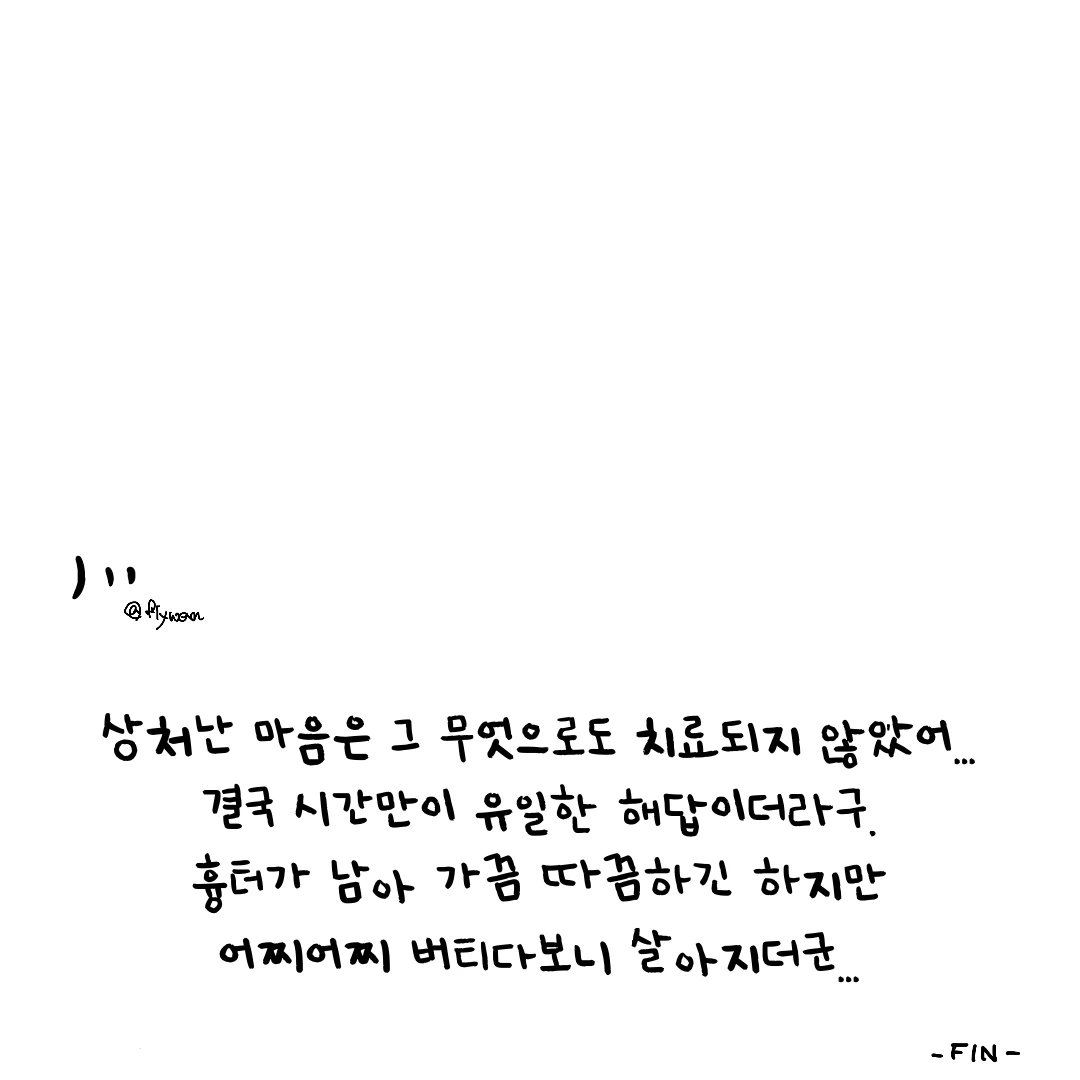 @flywon
상처난 마음은 그 무엇으로도 치료되지 않았어...
결국 시간만이 유일한 해답이더라구.
흉터가 남아 가끔 따끔하긴 하지만
어찌어찌 버티다보니 살아지더군...
- FIN -